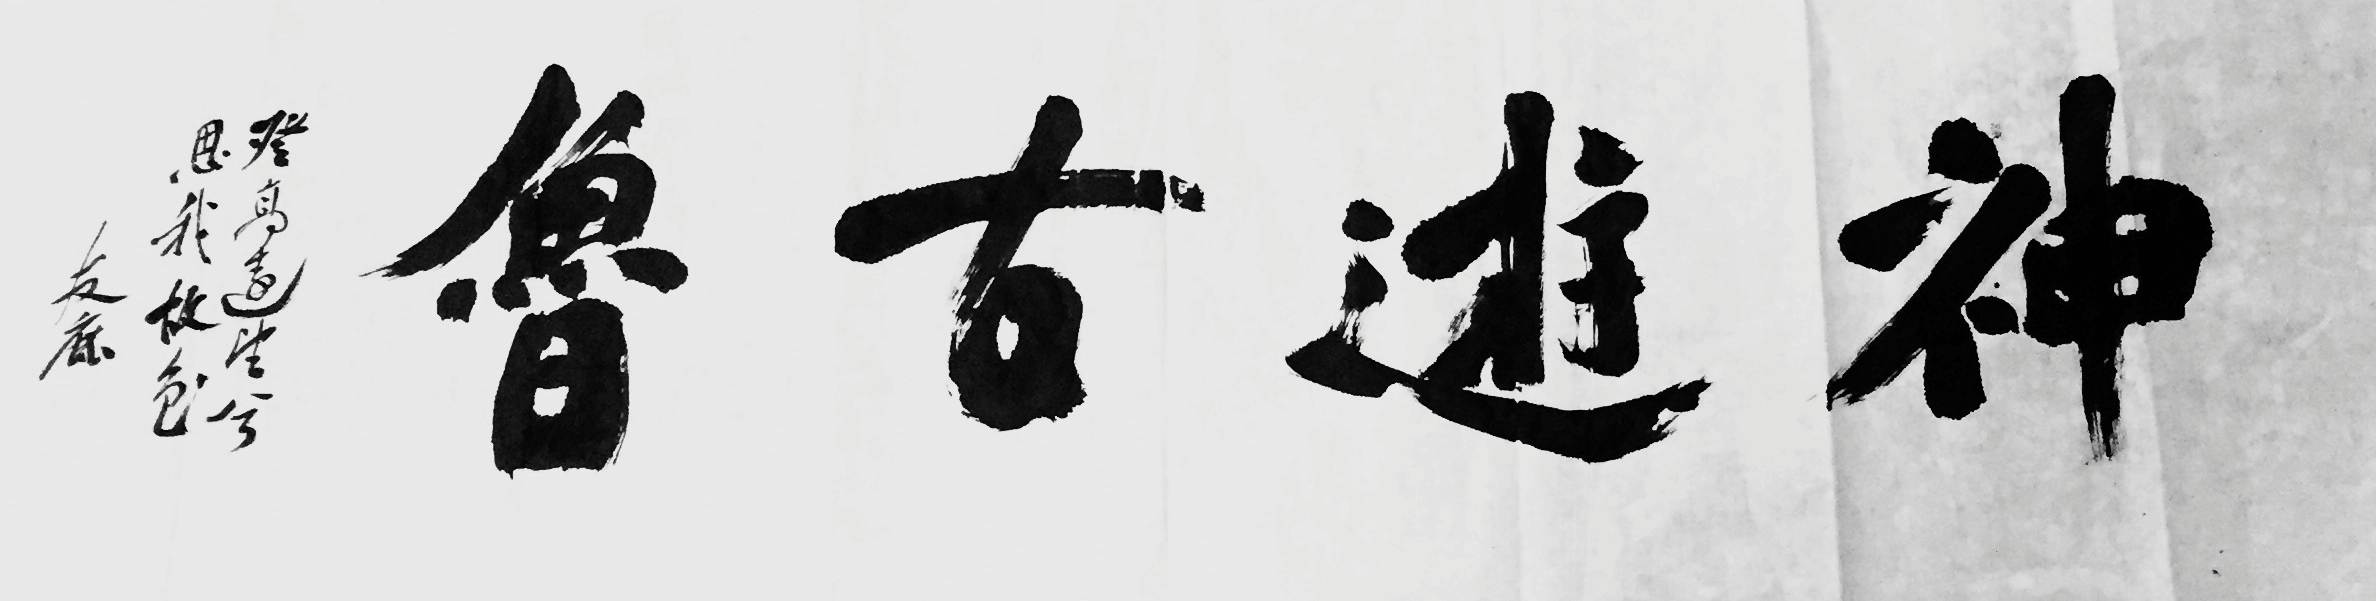 神遊古魯
登高遠望兮
思我故色
友廉